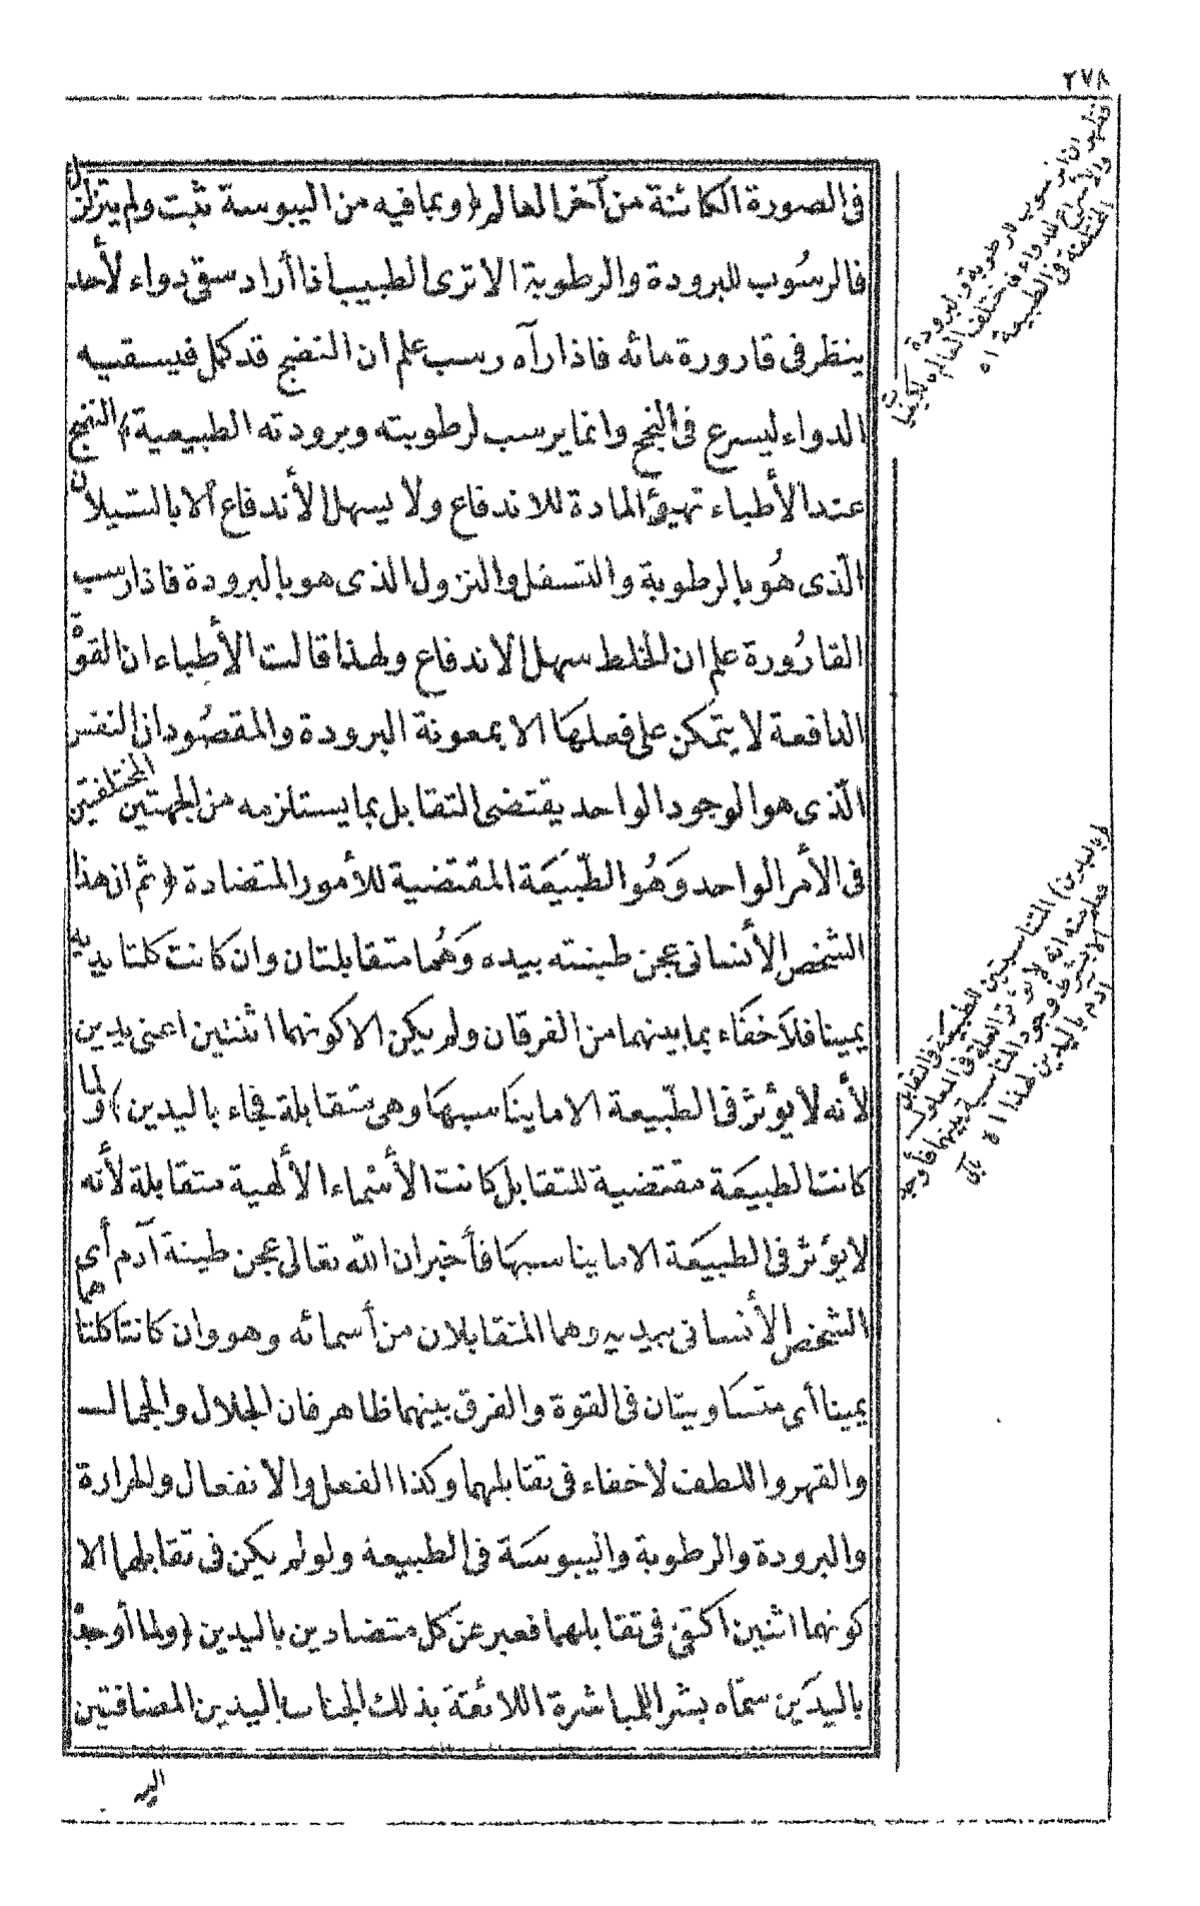 ٢٧٨
فى الصورة الكائنة من آخر العالم (وبما فيه من اليبوسة ثبت ولم يتزلزل
فالرسُوب للبرودة والرطوبة الا ترى الطبيب اذا أراد سقى دواء لأحد
ينظر فى قارورة مائه فاذا رآه رسب علم ان النضج قد كمل فيسقيه
الدواء ليسرع فى النجح وانما يرسب لرطوبته وبرودته الطبيعية) النضج
عند الأطباء تهيؤ المادة للاندفاع ولا يسهل الأندفاع الا بالتسيلان
الّذى هُو بالرطوبة والتسفل والنزول الذى هو بالبرودة فاذا رسب
القارُورة علم ان الخلط سهل الاندفاع ولهذا قالت الأطباء ان القوّة
الدافعة لا يتمكن على فعلها الا بمعونة البرودة والمقصُود ان النفس
الّذى هو الوجود الواحد يقتضى التقابل بما يستلزمه من الجهتين المختلفتين
فى الأمر الواحد وَهُو الطّبيعَة المقتضية للأمور المتضادة (ثم ان هذا
الشخص الأنسانى عجن طينته بيده وَهُما متقابلتان وان كانت كلتا يديه
يمينا فلاَ خفَاء بما بينهما من الفرقان ولم يكن الا كونهما اثنتين اعنى يدين
لأنه لا يؤثر فى الطّبيعة الا ما يناسبها وهى متقابلة فجاء باليدين) ولما
كانت الطبيعَة مقتضية للتقابل كانت الأسْماء الألهية متقابلة لأنه
لا يؤثر فى الطبيعَة الا ما يناسبهَا فأخبر ان الله تعالى عجن طينة آدم أى
الشخص الأنسانى بيديه وهما المتقابلان من أسمائه وهو وان كانتا كلتاهما
يمينا أى متساويتان فى القوة والفرق بينهما ظاهر فان الجلال والجمال
والقهر واللطف لا خفاء فى تقابلهما وكذا الفعل والانفعال والحرارة
والبرودة والرطوبة واليبوسَة فى الطبيعة ولو لم يكن فى تقابلهما الا
كونهما اثنين اكتفى فى تقابلهما فعبر عن كل متضادين باليدين (ولما أوجده
باليدَين سمّاه بشرا للمباشرة اللائقة بذلك الجناب باليدين المضافتين
اليه
(باليدين) المتناسبتين للطبيعَة فى التقابل
فعلم منه انه لا تؤثر العلة فى المعلول
الا بشرط وجود المناسبة بينهما فأوجد
آدم باليدين لهذا اه بالى